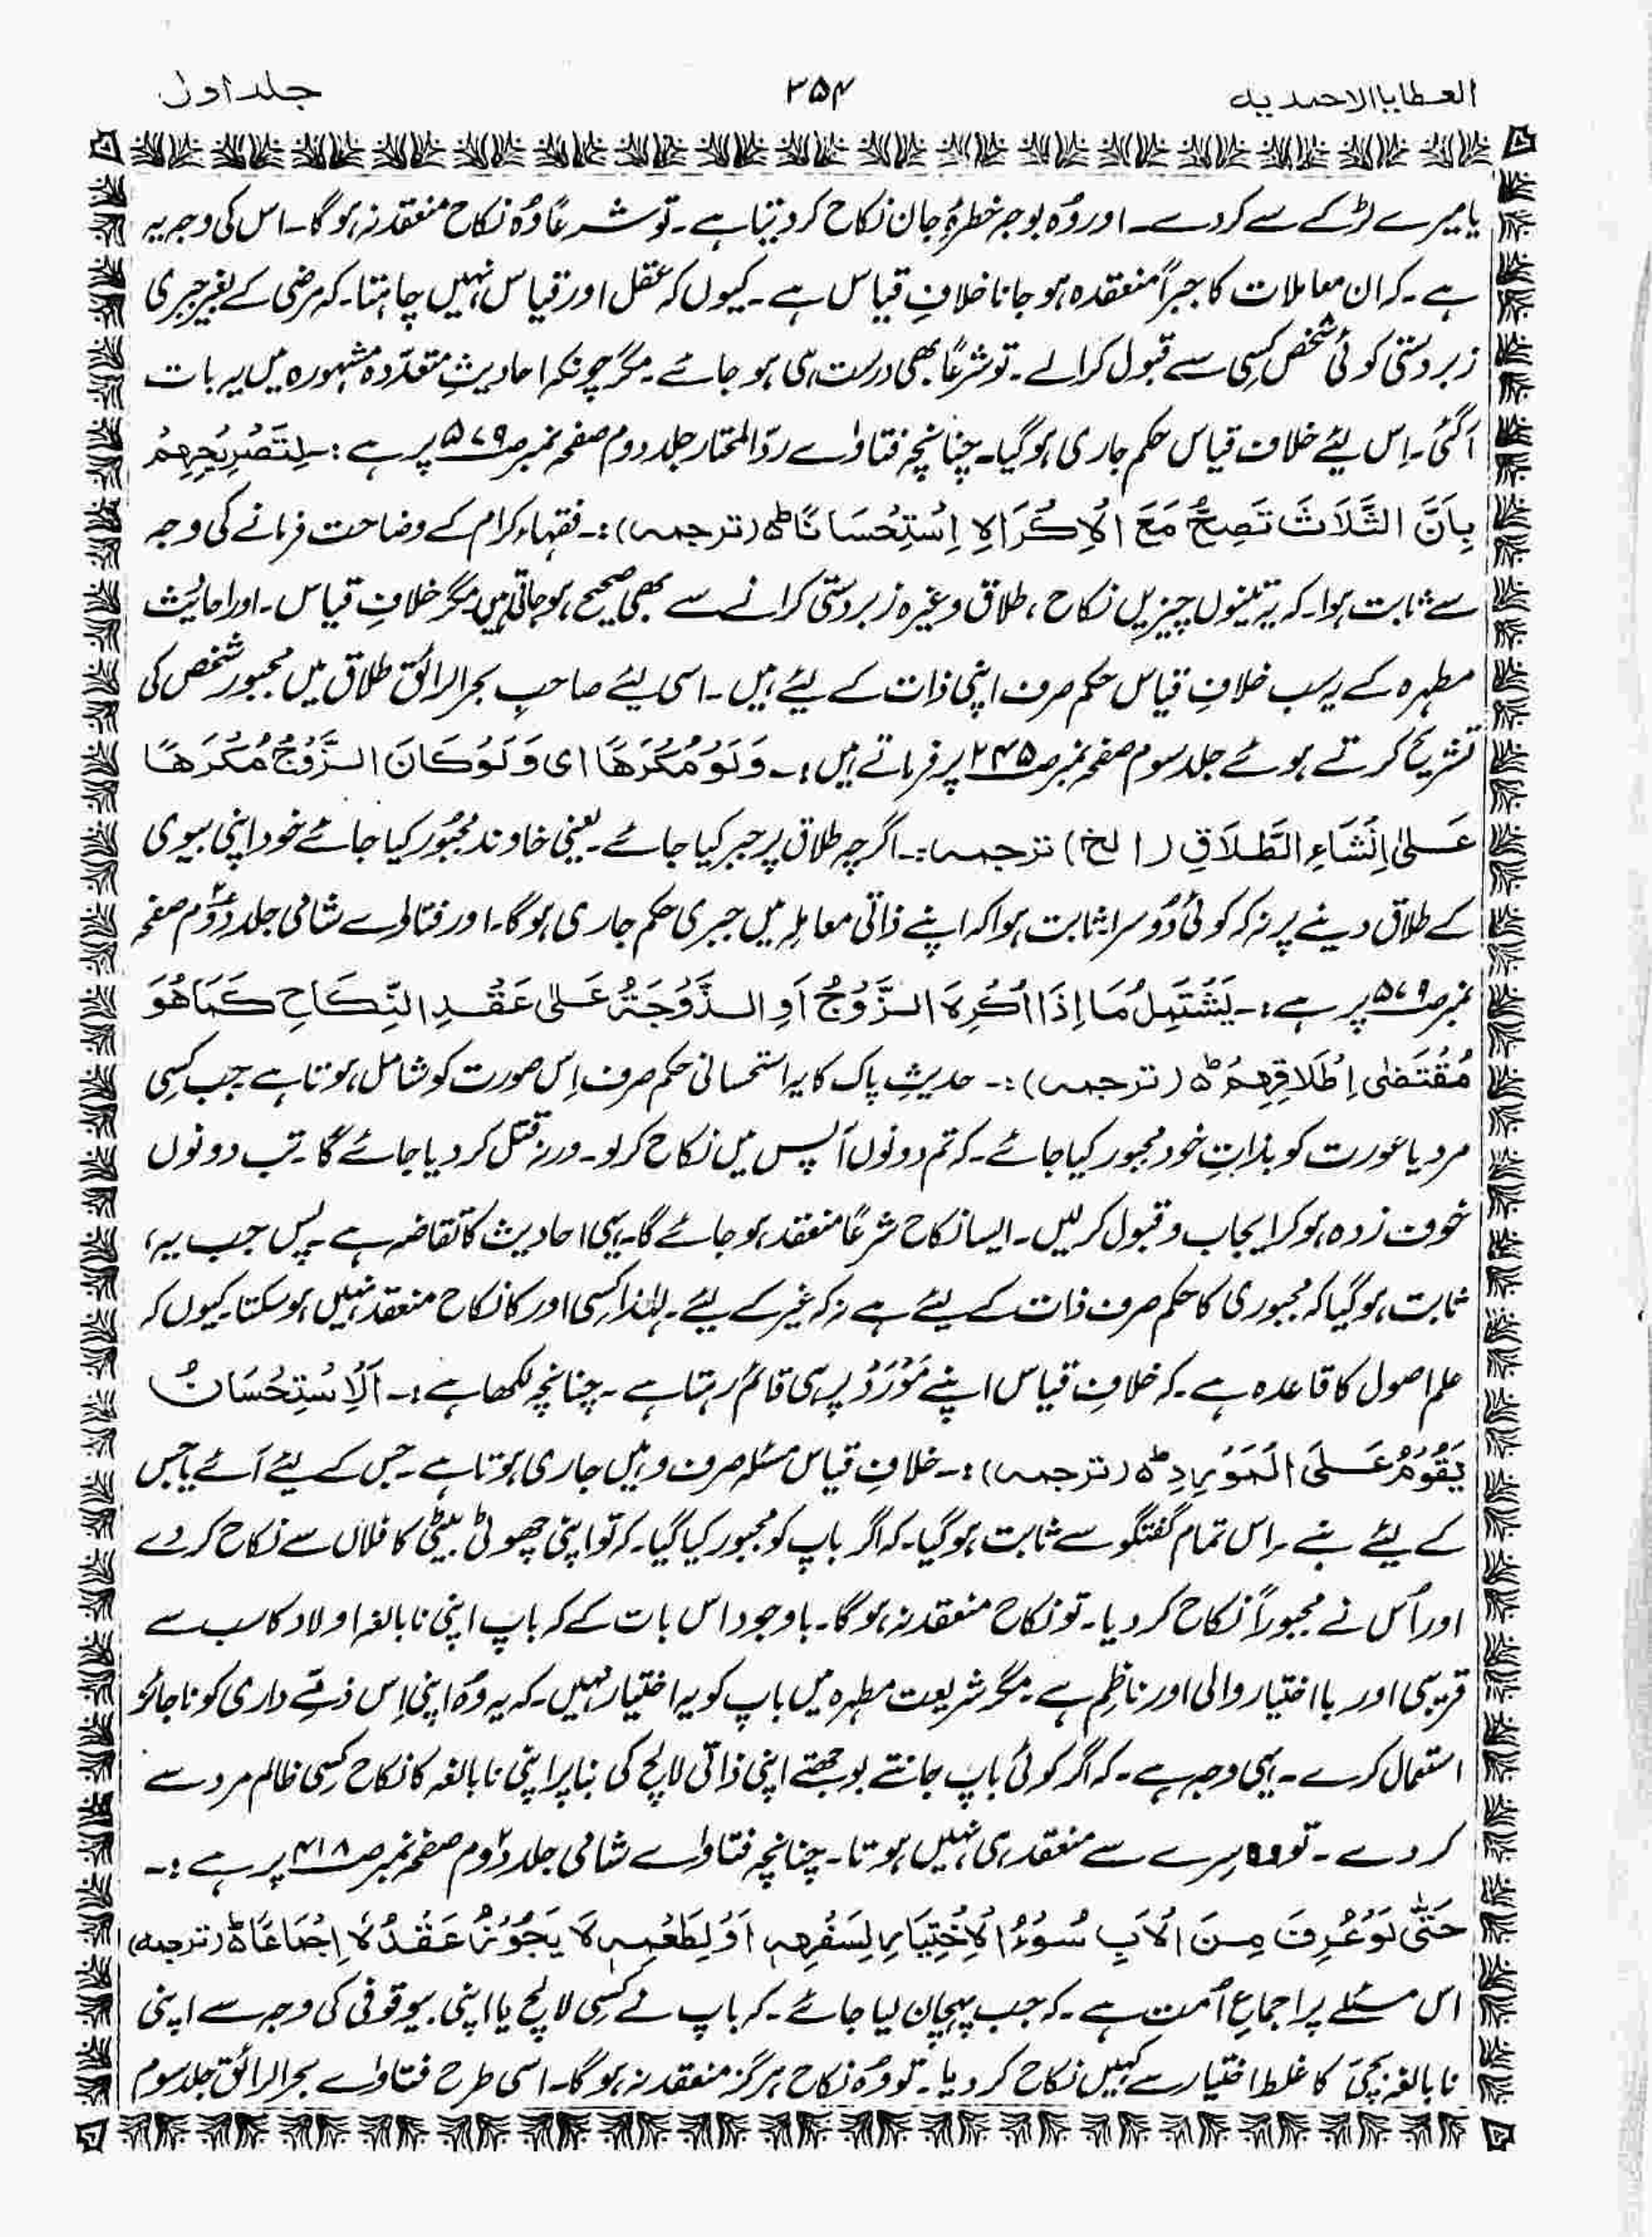 العطایا الاحمدیہ ۳۵۴ جلد اول
یا میرے لڑکے سے کردے۔ اور وُہ بوجہ خطرۂِ جان نکاح کر دیتا ہے۔ تو شرعًا وُہ نکاح منعقد نہ ہوگا۔ اس کی وجہ یہ
ہے۔ کہ ان معاملات کا جبراً منعقدہ ہو جانا خلافِ قیاس ہے۔ کیوں کہ عقل اور قیاس نہیں چاہتا۔ کہ مرضی کے بغیر جبری
زبردستی کوئی شخص کسِی سے قبول کرالے۔ تو شرعًا بھی درست ہی ہو جائے۔ مگر چونکہ احادیثِ متعدّدہ مشہورہ میں یہ بات
آگئی۔ اِس لیئے خلاف قیاس حکم جاری ہوگیا۔ چنانچہ فتاوٰے ردّ المختار جلد دوم صفحہ نمبر صـ۵۷۹ پر ہے :۔ لِتَصْرِیْحِهِمْ
بِاَنَّ الثَّلَاثَ تَصِحُّ مَعَ الْاِكْرَاہِ اِسْتِحْسَانًاط (ترجمہ) :۔ فقہاء کرام کے وضاحت فرمانے کی وجہ
سے ثابت ہوا۔ کہ یہ تینوں چیزیں نکاح ، طلاق وغیرہ زبردستی کرانے سے بھی صحیح ہو جاتی ہیں مگر خلافِ قیاس۔ اور احادیث
مطہرہ کے یہ سب خلافِ قیاس حکم صرف اپنی ذات کے لیئے ہیں۔ اسی لیئے صاحبِ بحر الرائق طلاق میں مجبور شخص کی
تشریح کرتے ہوئے جلد سوم صفحہ نمبر صـ۲۴۵ پر فرماتے ہیں :۔ وَلَوْ مُكْرَهًا ای وَلَوْ كَانَ الزَّوْجُ مُكْرَهًا
عَلیٰ اِنْشَاءِ الطَّلَاقِ (الخ) ترجمہ :۔ اگرچہ طلاق پر جبر کیا جائے۔ یعنی خاوند مجبُور کیا جائے خود اپنی بیوی
کے طلاق دینے پر نہ کہ کوئی دُوسرا ثابت ہوا کہ اپنے ذاتی معاملہ میں جبری حکم جاری ہوگا۔ اور فتاوٰے شامی جلد دوُم صفحہ
نمبر صـ۵۷۹ پر ہے :۔ یَشْتَمِلُ مَا اِذَا اُكْرِہَ الزَّوْجُ اَوِ الزَّوْجَةُ عَلیٰ عَقْدِ النِّكَاحِ كَمَا هُوَ
مُقْتَضٰی اِطْلَاقِهِمْ ط (ترجمہ) :۔ حدیثِ پاک کا یہ استحسانی حکم صرف اِس صورت کو شامل ہوتا ہے جب کسِی
مرد یا عورت کو بذاتِ خود مجبور کیا جائے۔ کہ تم دونوں آپس میں نکاح کر لو۔ ورنہ قتل کر دیا جائے گا۔ تب دونوں
خوف زدہ ہو کر ایجاب و قبول کر لیں۔ ایسا نکاح شرعًا منعقد ہو جائے گا۔ یہی احادیث کا تقاضہ ہے۔ پس جب یہ،
ثابت ہوگیا کہ مجبوری کا حکم صرف ذات کے لیئے ہے نہ کہ غیر کے لیئے۔ لہٰذا کسِی اور کا نکاح منعقد نہیں ہو سکتا۔ کیوں کہ
علمِ اصول کا قاعدہ ہے۔ کہ خلافِ قیاس اپنے مَوْرَدْ پر ہی قائم رہتا ہے۔ چنانچہ لکھا ہے :۔ اَلْاِسْتِحْسَانُ
یَقُوْمُ عَلَی الْمَوْرِدِط (ترجمہ) :۔ خلافِ قیاس مسئلہ صرف وہیں جاری ہوتا ہے۔ جس کے لیئے آئے یا جس
کے لیئے بنے۔ اس تمام گفتگو سے ثابت ہوگیا۔ کہ اگر باپ کو مجبور کیا گیا۔ کہ تو اپنی چھوٹی بیٹی کا فلاں سے نکاح کر دے
اور اُس نے مجبوراً نکاح کر دیا۔ تو نکاح منعقد نہ ہوگا۔ باوجود اس بات کے کہ باپ اپنی نابالغہ اولاد کا سب سے
قریبی اور بااختیار والی اور ناظِم ہے۔ مگر شریعت مطہرہ میں باپ کو یہ اختیار نہیں۔ کہ یہ وُہ اپنی اِس ذمّے داری کو ناجائز
استعمال کرے۔ یہی وجہ ہے۔ کہ اگر کوئی باپ جانتے بوجھتے اپنی ذاتی لالچ کی بنا پر اپنی نابالغہ کا نکاح کسِی ظالم مرد سے
کر دے۔ تو وہ سِرے سے منعقد ہی نہیں ہوتا۔ چنانچہ فتاوٰے شامی جلد دوُم صفحہ نمبر صـ۴۱۸ پر ہے :۔
حَتّٰی لَوْ عُرِفَ مِنَ الْاَبِ سُوْءُ الْاِخْتِیَارِ لِسَفْهِهٖ اَوْ لِطَعْمِهٖ لَا یَجُوْزُ عَقْدُہٗ اِجْمَاعًاط (ترجمہ)
اس مسئلے پر اجماعِ اُمت ہے۔ کہ جب پہچان لیا جائے۔ کہ باپ نے کسِی لالچ یا اپنی بیوقوفی کی وجہ سے اپنی
نابالغہ بچی کا غلط اختیار سے کہیں نکاح کر دیا۔ تو وُہ نکاح ہرگز منعقد نہ ہوگا۔ اسی طرح فتاوٰے بحر الرائق جلد سوم